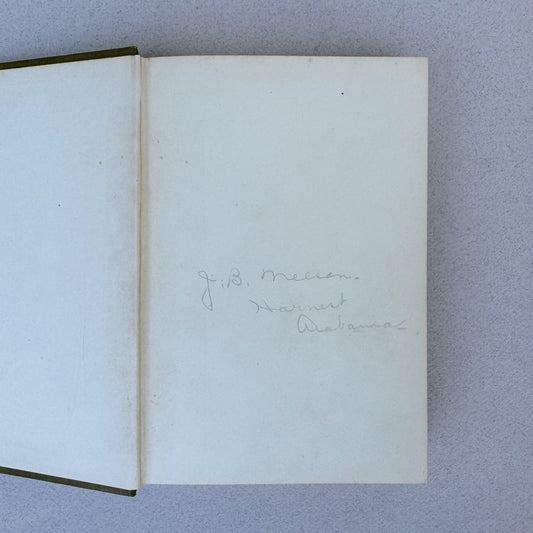 J. B. Meeson.
Harvest
Alabama